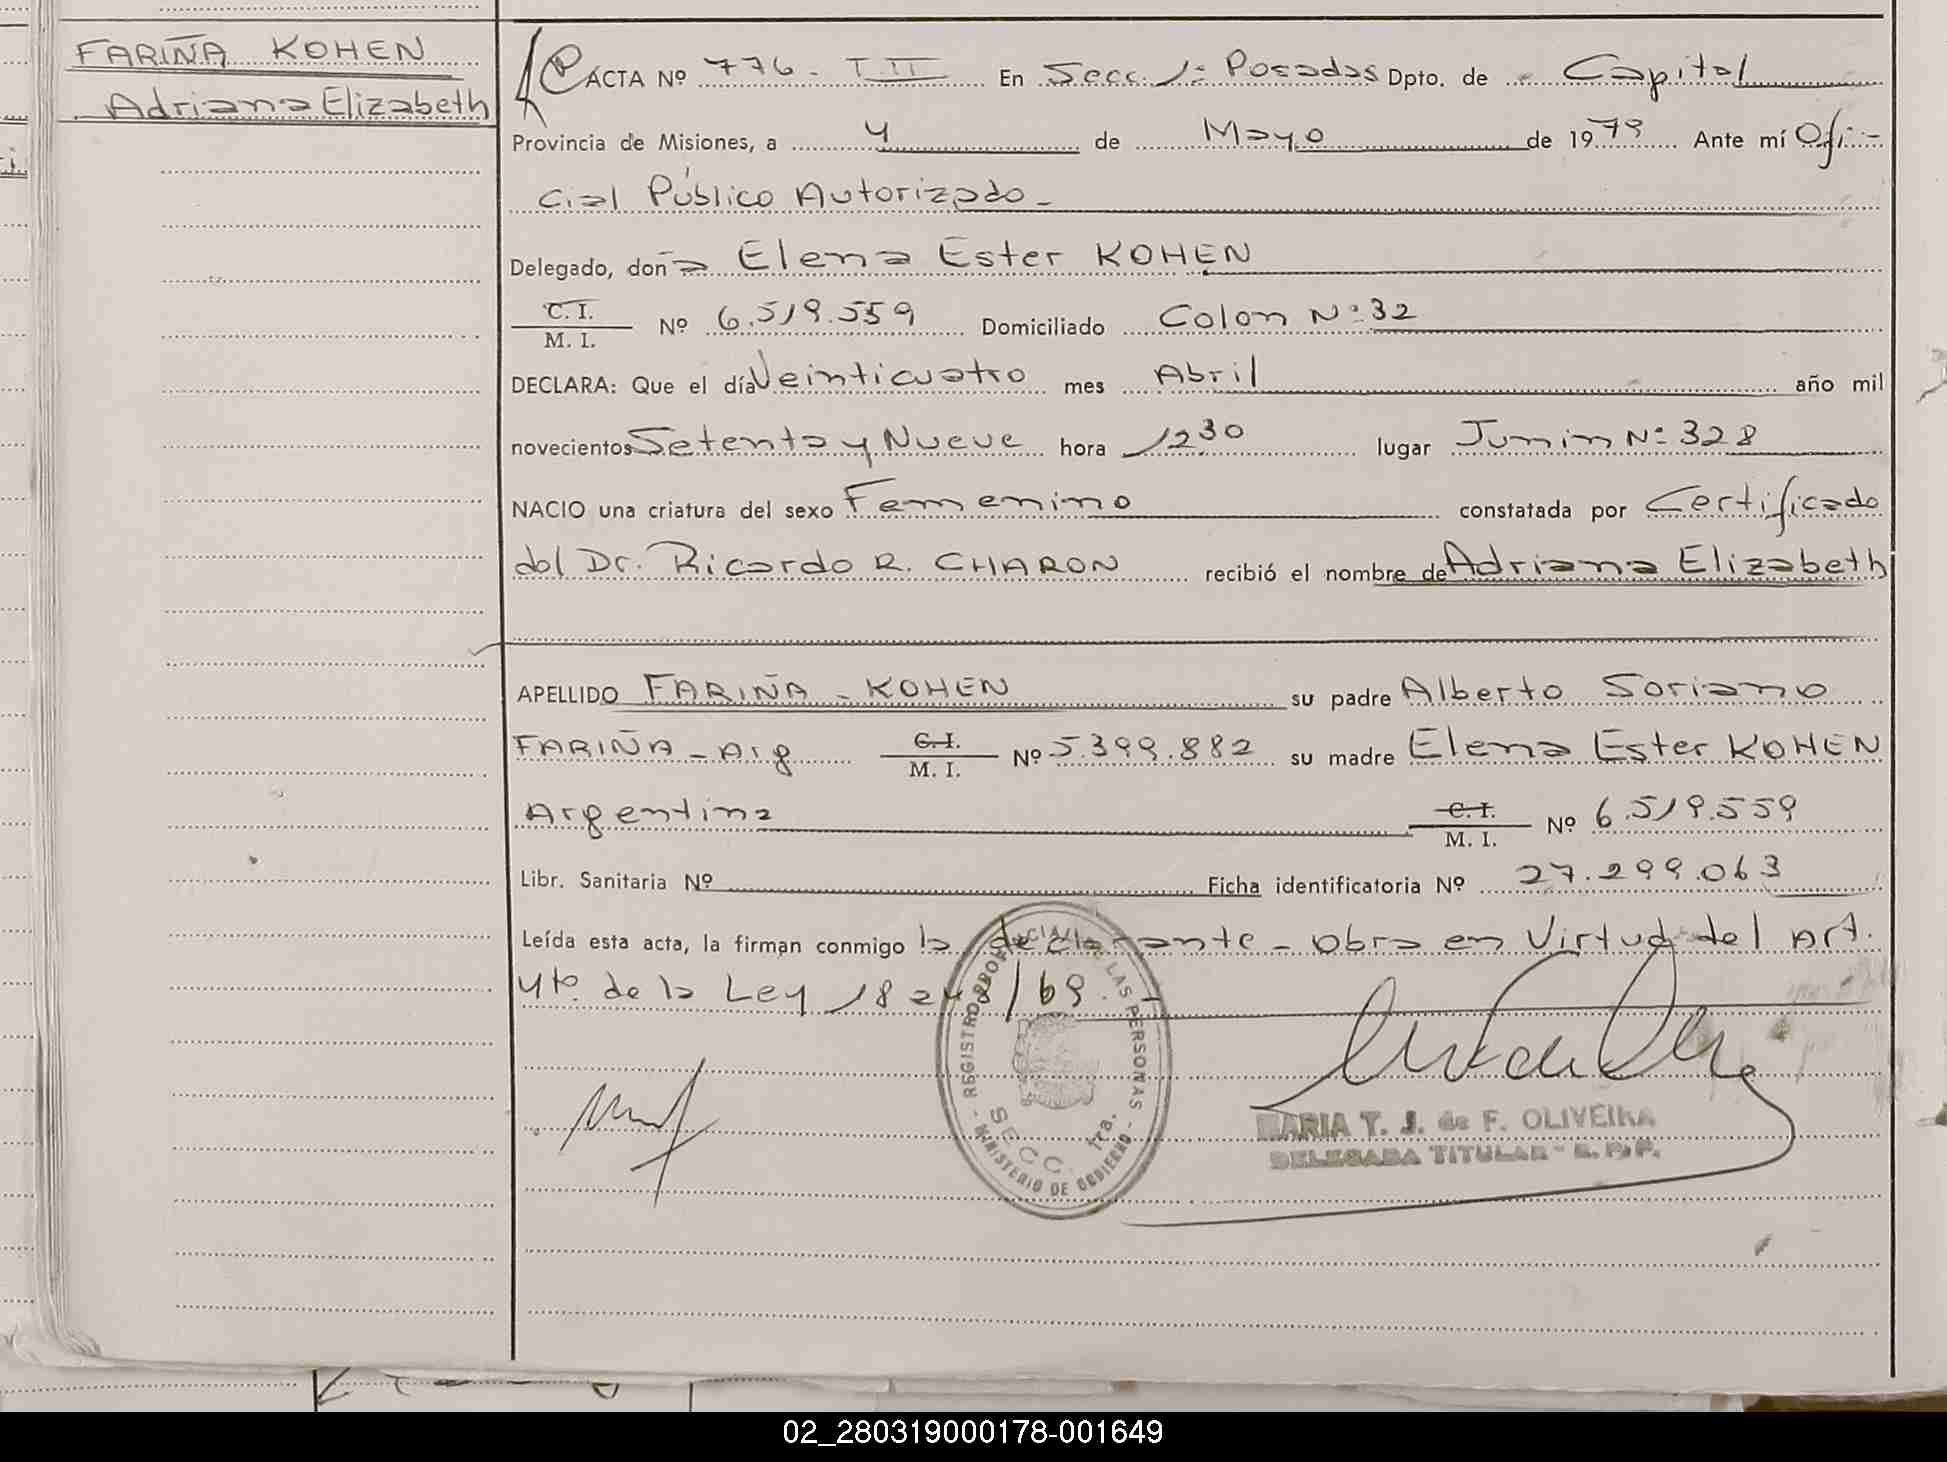 FARIÑA KOHEN
Adriana Elizabeth
ACTA Nº 776 - T II En Secc. 1ª Posadas Dpto. de Capital
Provincia de Misiones, a 4 de Mayo de 1979 Ante mí Ofi-
cial Público Autorizado -
Delegado, doña Elena Ester KOHEN
C. I.
M. I. Nº 6.519.559 Domiciliado Colon Nº 32
DECLARA: Que el día Veinticuatro mes Abril año mil
novecientos Setenta y Nueve hora 12 30 lugar Junin Nº 328
NACIO una criatura del sexo Femenino constatada por Certificado
del Dr. Ricardo R. CHARON recibió el nombre de Adriana Elizabeth
APELLIDO FARIÑA - KOHEN su padre Alberto Soriano
FARIÑA - Arg C. I. M. I. Nº 5.399.882 su madre Elena Ester KOHEN
Argentina C. I. M. I. Nº 6.519.559
Libr. Sanitaria Nº Ficha identificatoria Nº 27.299.063
Leída esta acta, la firman conmigo la declarante - obra en Virtud del Art.
4to. de la Ley 18 248/69. -
REGISTRO PROVINCIAL DE LAS PERSONAS
SECC. 1ra.
- MINISTERIO DE GOBIERNO -
MARIA T. J. de F. OLIVEIRA
DELEGADA TITULAR - R. P. P.
02_280319000178-001649